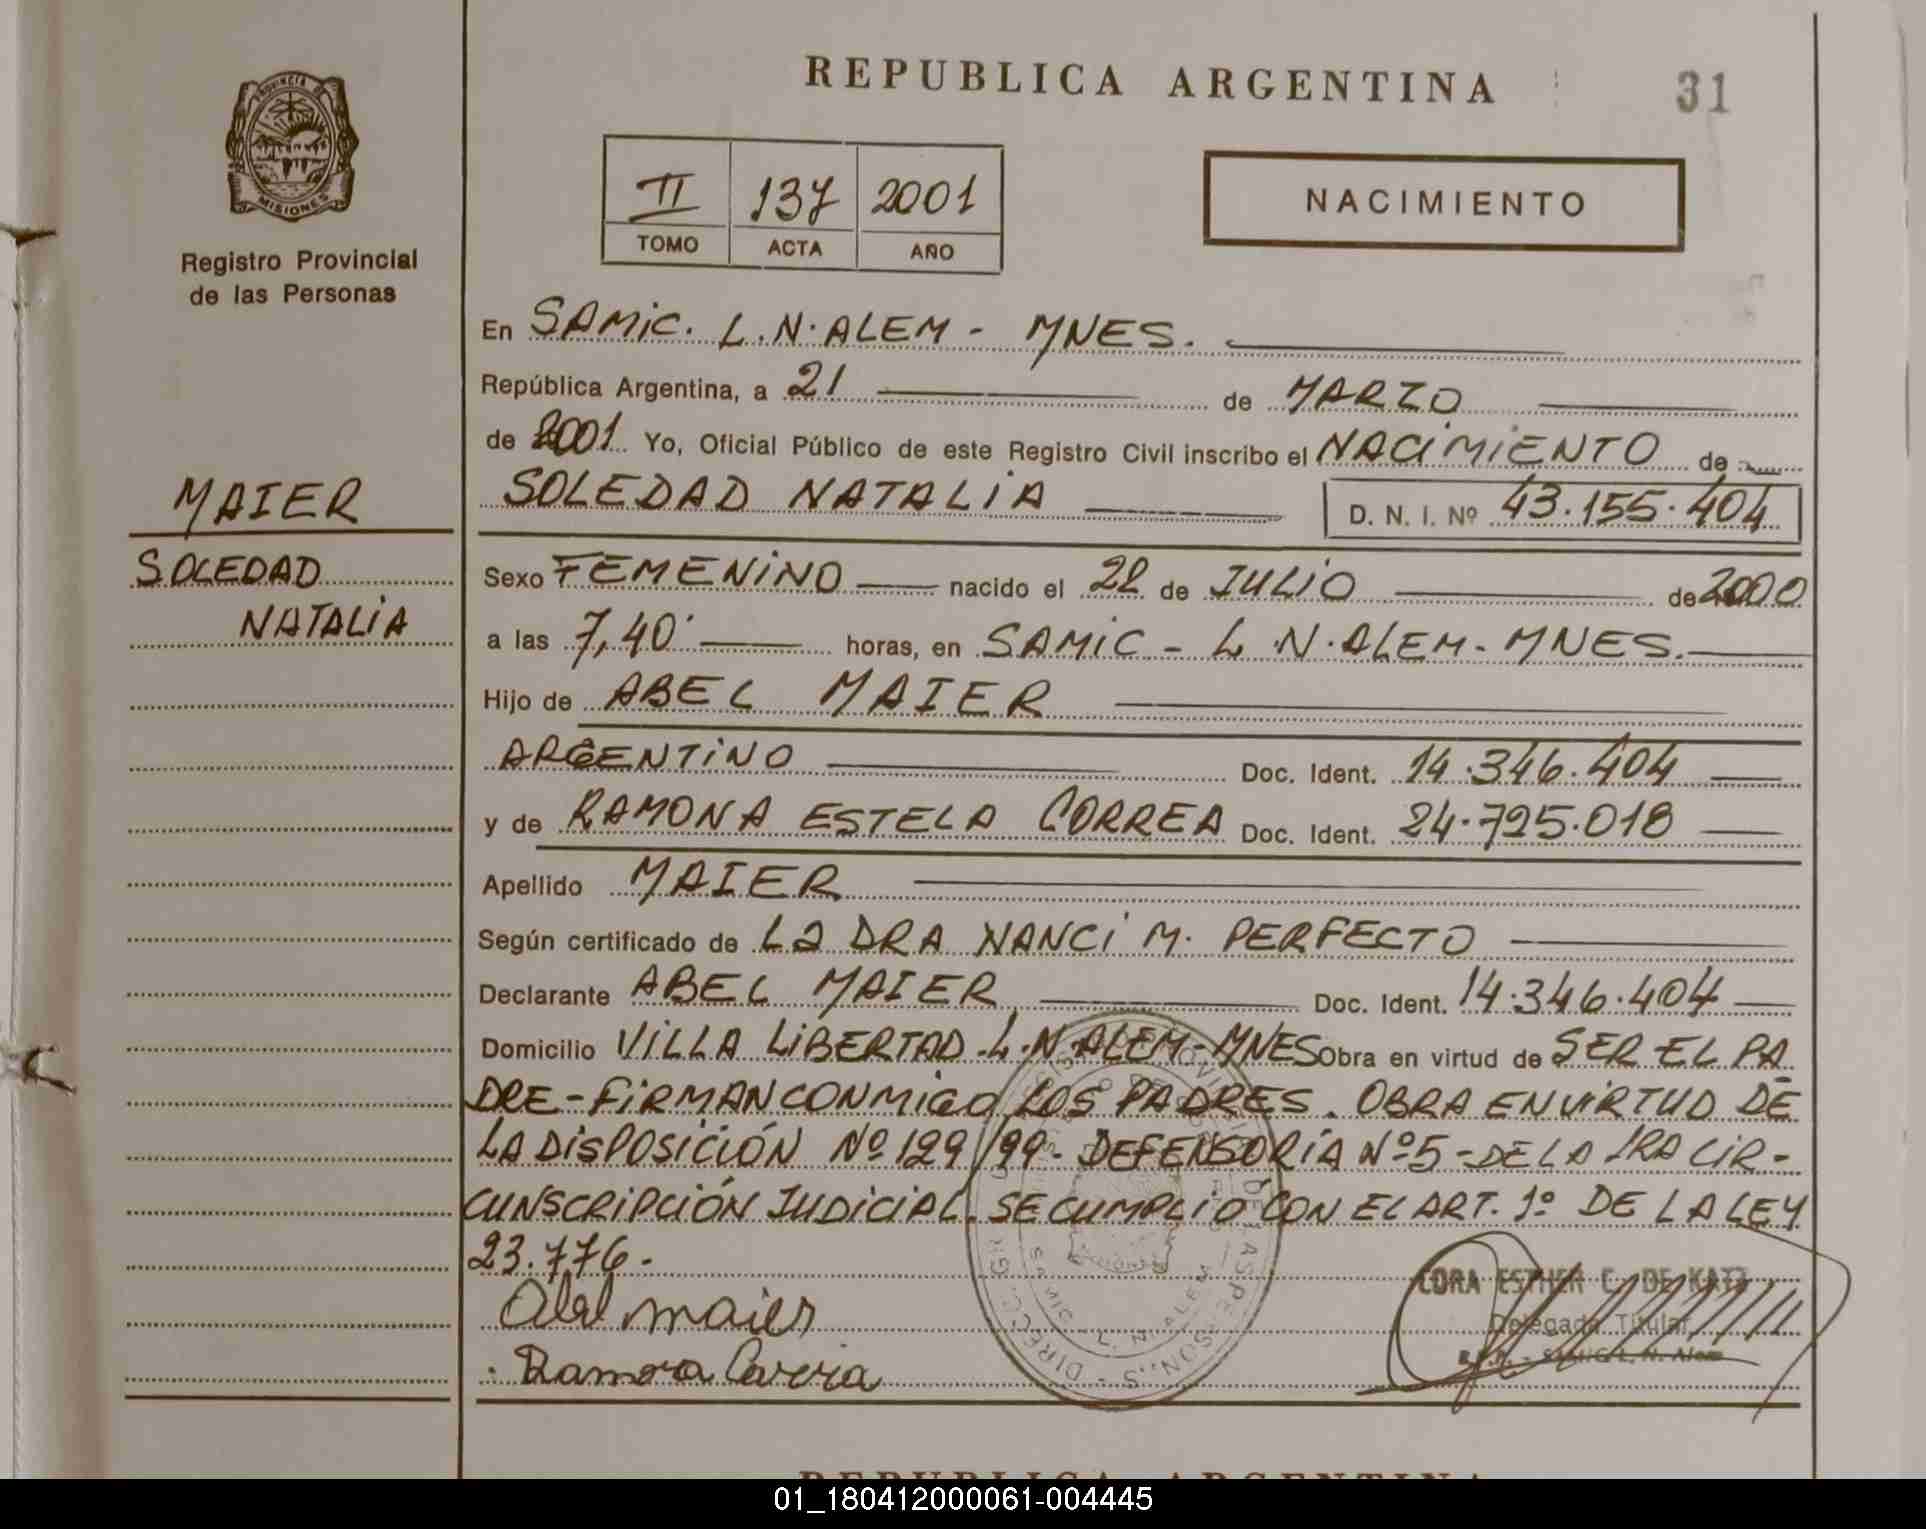 REPUBLICA ARGENTINA
31
PROVINCIA DE
MISIONES
Registro Provincial
de las Personas
II 137 2001
TOMO ACTA AÑO
NACIMIENTO
En SAMIC. L.N. ALEM - MNES.
República Argentina, a 21 de MARZO
de 2001 Yo, Oficial Público de este Registro Civil inscribo el NACIMIENTO de
SOLEDAD NATALIA D. N. I. Nº 43.155.404
MAIER
SOLEDAD
NATALIA
Sexo FEMENINO nacido el 22 de JULIO de 2000
a las 7,40' horas, en SAMIC - L.N. ALEM - MNES.
Hijo de ABEL MAIER
ARGENTINO Doc. Ident. 14.346.404
y de RAMONA ESTELA CORREA Doc. Ident. 24.725.018
Apellido MAIER
Según certificado de La DRA NANCI M. PERFECTO
Declarante ABEL MAIER Doc. Ident. 14.346.404
Domicilio VILLA LIBERTAD. L.N. ALEM - MNES Obra en virtud de SER EL PA
DRE - FIRMAN CONMIGO LOS PADRES. OBRA EN VIRTUD DE
LA DISPOSICIÓN Nº 129/99 - DEFENSORÍA Nº 5 - DE LA 1RA CIR-
CUNSCRIPCIÓN JUDICIAL. SE CUMPLIÓ CON EL ART. 1º DE LA LEY
23.776.-
Abel maier
Ramona Correa
CORA ESTHER C. DE KATZ
Delegada Titular
SAMIC L. N. Alem
REPUBLICA ARGENTINA
01_180412000061-004445